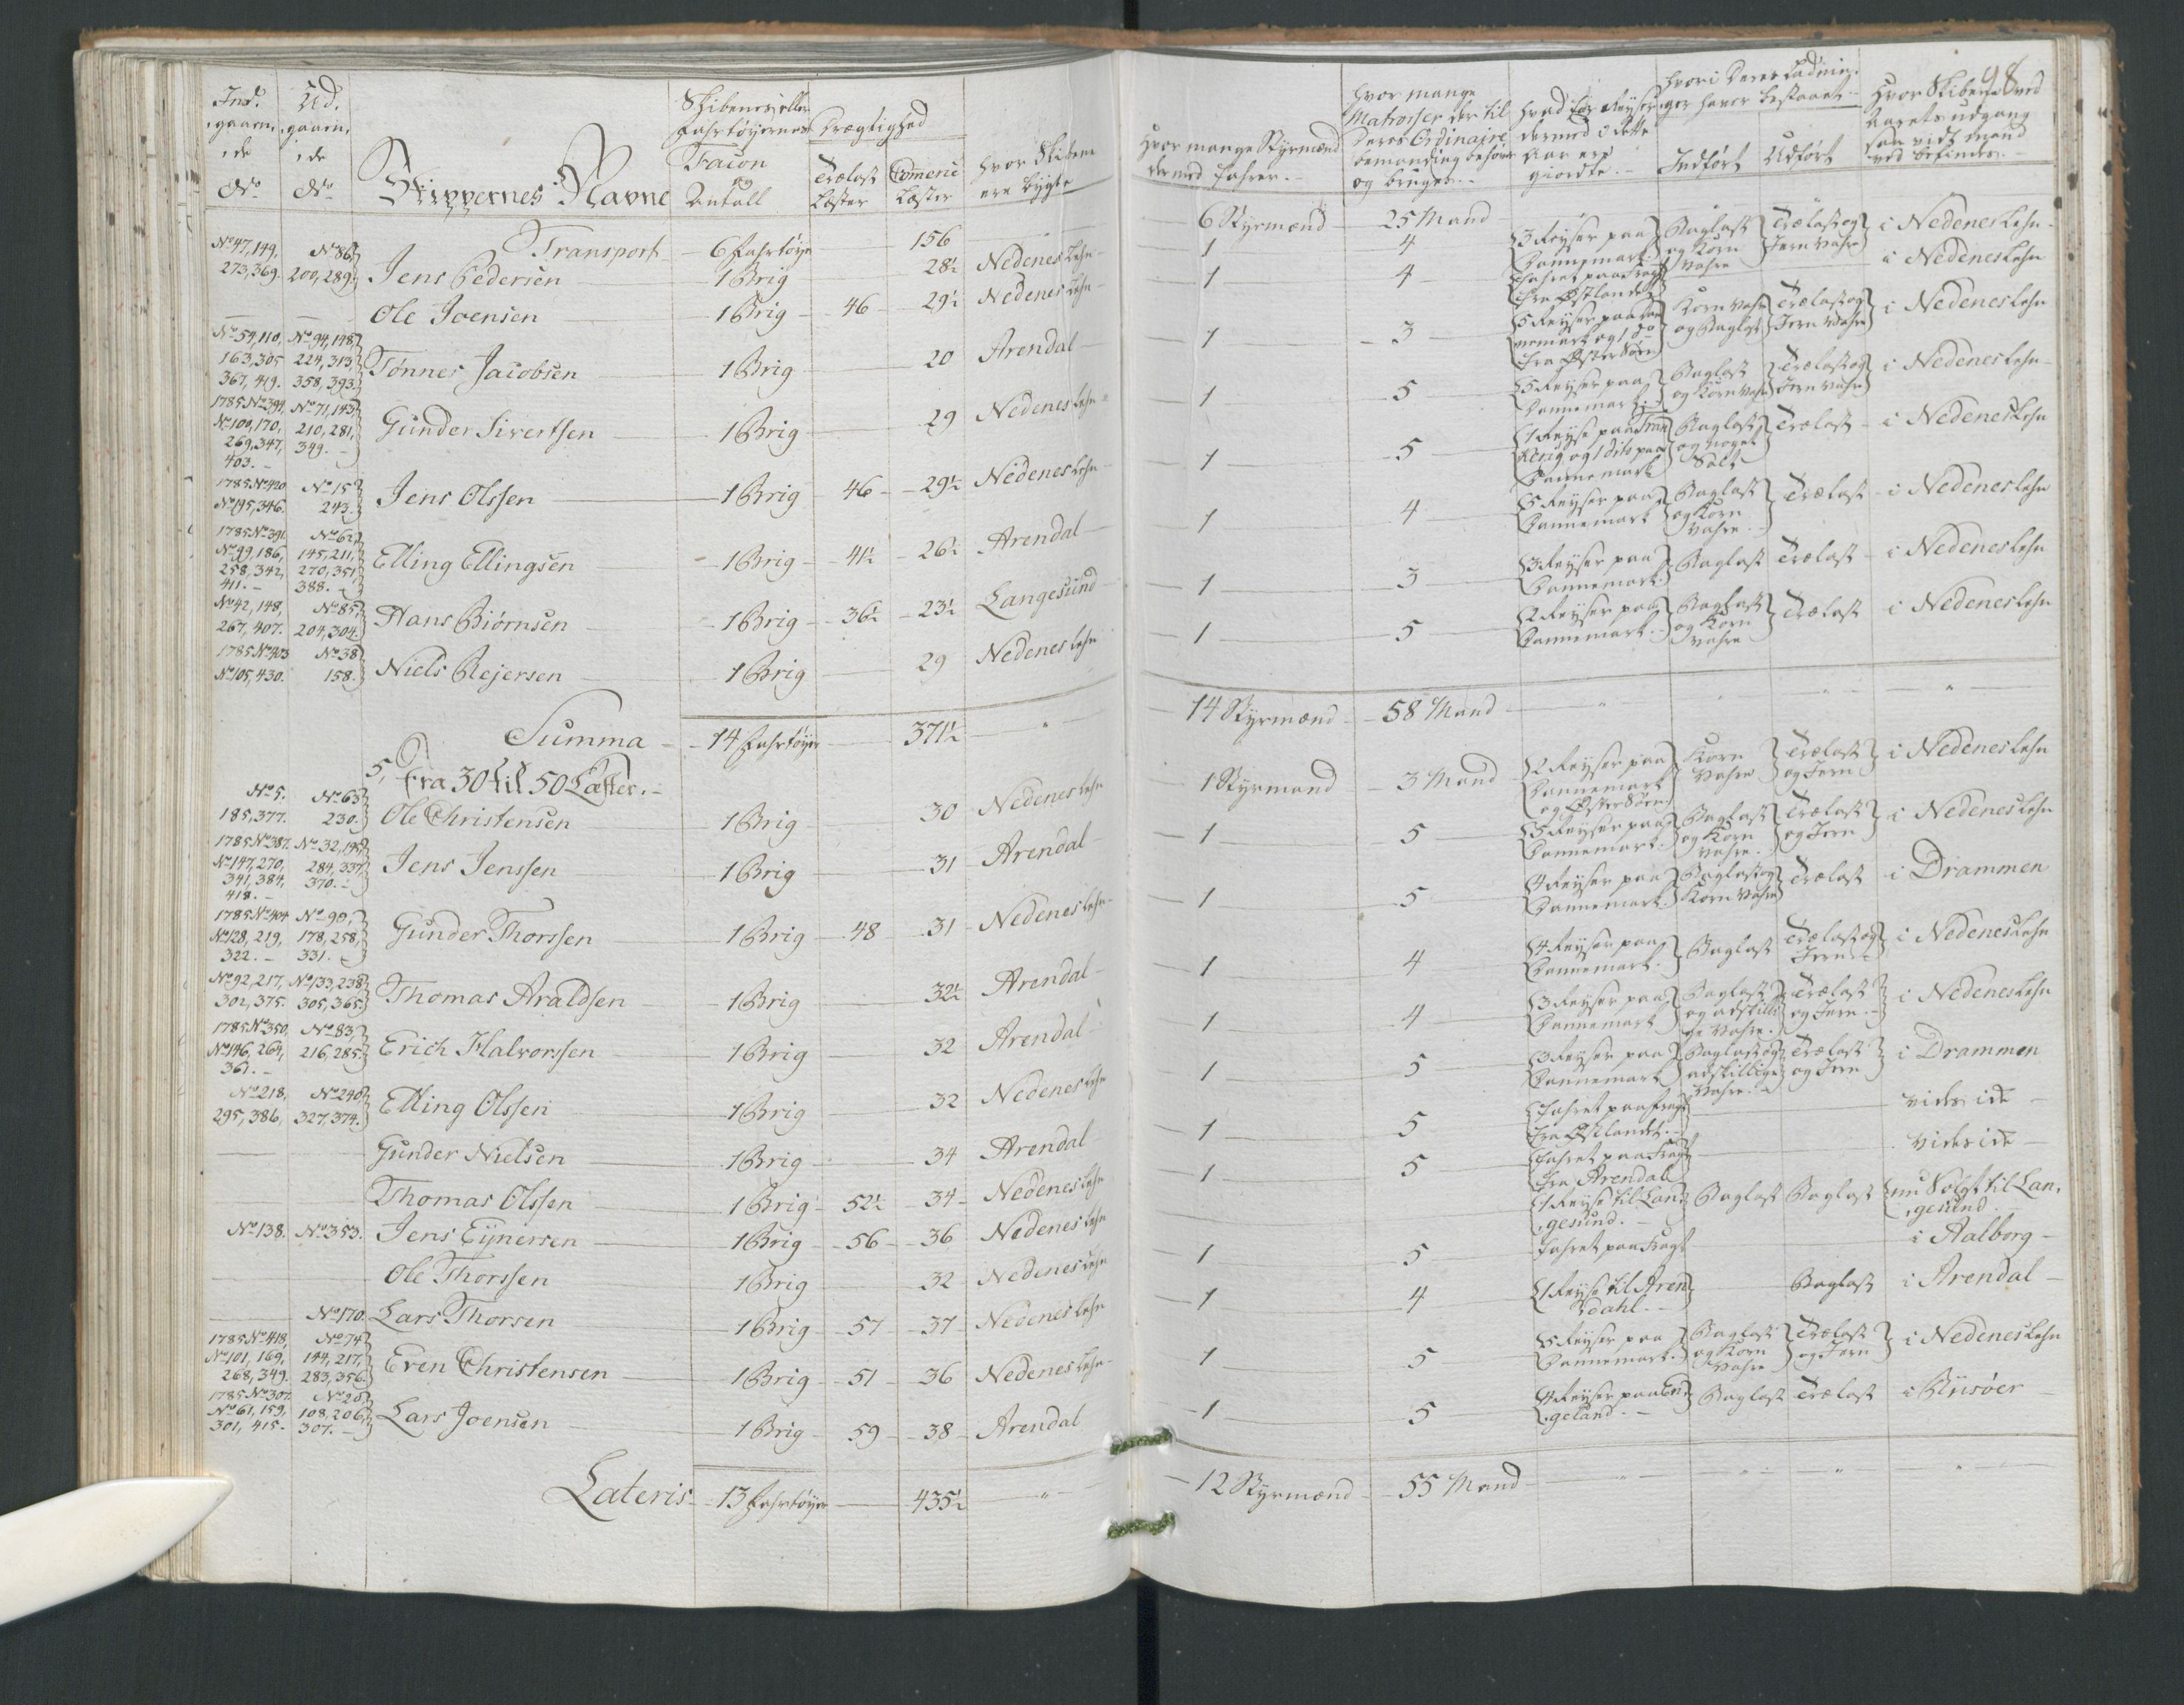 98
Ind¹ gaaen, ide No
Ud, gaaen, ide No
Skippernes Navne
Skibenes eller Fahrtøyernes Facon og Antall
Drægtighed
Trælast Læster
Comerce Læster
Hvor Skibene ere bygte
Hvor mange Styrmænd dermed fahrer.
Hvor mange Matroser der til Deres Ordinaire bemanding behøves og bruges.
Hvad for Reyser dermed i dette Aar ere giordte.
Hvori Deres Ladninger haver bestaaet.
Indført
Udført
Hvor Skibene ved Aarets udgang saa vidt mand ved befindes.
Transport 6 Fahrtøye 156 6 Styrmænd 25 Mand
No 47, 149, 273, 369. No 86, 200, 289. Jens Pedersen 1 Brig 28½ Nedenes Lehn 1 4 3 Reyser paa Dannemark Baglast og Korn Vahre Trælast og Jern Vahre i Nedenes Lehn
Ole Joensen 1 Brig 46 29½ Nedenes Lehn 1 4 Fahret paa Fragt fra Østlandet i Nedenes Lehn
No 54, 110, 163, 305 367, 419. No 94, 148, 224, 313, 358, 393. Tønnes Jacobsen 1 Brig 20 Arendal 1 3 5 Reyser paa Dannemark og 1 do fra Øster Søen Korn Vahre og Baglast Trælast og Jern Vahre i Nedenes Lehn
1785 No 394, No 100, 170, 269, 347, 403. No 71, 143, 210, 281, 349. Gunder Sivertsen 1 Brig 29 Nedenes Lehn 1 5 5 Reyser paa Dannemark Baglast og Korn Vahre Trælast og Jern Vahre i Nedenes Lehn
1785 No 420 No 195, 346. No 15 243. Jens Olssen 1 Brig 46 29½ Nedenes Lehn 1 5 1 Reyse paa Frankerig og 1 dito paa Dannemark Baglast og noget Salt Trælast i Nedenes Lehn
1785 No 391 No 99, 186, 258, 342, 411. No 62, 145, 211, 270, 351, 388. Elling Ellingsen 1 Brig 41½ 26½ Arendal 1 4 5 Reyser paa Dannemark Baglast og Korn Vahre Trælast i Nedenes Lehn
No 42, 148, 267, 407. No 85, 204, 304. Hans Biørnsen 1 Brig 36½ 23½ Langesund 1 3 3 Reyser paa Dannemark Baglast Trælast i Nedenes Lehn
1785 No 403 No 105, 430. No 38 158. Niels Rejersen 1 Brig 29 Nedenes Lehn 1 5 2 Reyser paa Dannemark Baglast og Korn Vahre Trælast i Nedenes Lehn
Summa 14 Fahrtøyer 371½ " 14 Styrmænd 58 Mand " " " "
5, fra 30 til 50 Læster.
No 5. 185, 377. No 63 230. Ole Christensen 1 Brig 30 Nedenes Lehn 1 Styrmand 3 Mand 2 Reyser paa Dannemark og Øster Søen Korn Vahre Trælast og Jern i Nedenes Lehn
1785 No 387. No 147, 270, 341, 384, 418. No 32, 195, 284, 337, 370. Jens Jenssen 1 Brig 31 Arendal 1 5 5 Reyser paa Dannemark Baglast og Korn Vahre Trælast og Jern i Nedenes Lehn
1785 No 404 No 128, 219, 322. No 90, 178, 258, 331. Gunder Thorssen 1 Brig 48 31 Nedenes Lehn 1 5 4 Reyser paa Dannemark Baglast og Korn Vahre Trælast i Drammen
No 92, 217, 302, 375. No 133, 238, 305, 365. Thomas Araldsen 1 Brig 32½ Arendal 1 4 4 Reyser paa Dannemark Baglast Trælast og Jern i Nedenes Lehn
1785 No 350, No 146, 264, 361. No 83, 216, 285. Erich Halvorssen 1 Brig 32 Arendal 1 4 3 Reyser paa Dannemark Baglast og adskillige Vahre. Trælast og Jern i Nedenes Lehn
No 218, 295, 386, No 240, 327, 374. Elling Olssen 1 Brig 32 Nedenes Lehn 1 5 3 Reyser paa Dannemark Baglast og adskillige Vahre Trælast og Jern i Drammen
Gunder Nielsen 1 Brig 34 Arendal 1 5 Fahret paa Fragt fra Østlandet vides ic̄e
Thomas Olssen 1 Brig 52½ 34 Nedenes Lehn 1 5 Fahret paa Fragt fra Arendal vides ic̄e
No 138. No 353. Jens Eynersen 1 Brig 56 36 Nedenes Lehn 1 Reyse til Langesund. Baglast Baglast nu Solgt til Langesund
Ole Thorssen 1 Brig 32 Nedenes Lehn 1 5 Fahret paa Fragt i Aalborg
No 170. Lars Thorsen 1 Brig 57 37 Nedenes Lehn 1 4 1 Reyse til Arendahl. Baglast i Arendal
1785 No 418, No 101, 169, 268, 349. No 74 144, 217, 283, 356. Even Christensen 1 Brig 51 36 Nedenes Lehn 1 5 5 Reyser paa Dannemark. Baglast og Korn Vahre Trælast og Jern i Nedenes Lehn
1785 No 307. No 61, 159, 301, 415. No 20, 108, 206, 307. Lars Joensen 1 Brig 59 38 Arendal 1 5 4 Reyser paa Engeland. Baglast Trælast i Riisøer
Lateris 13 Fahrtøyer 435½ " 12 Styrmænd 55 Mand " " " "